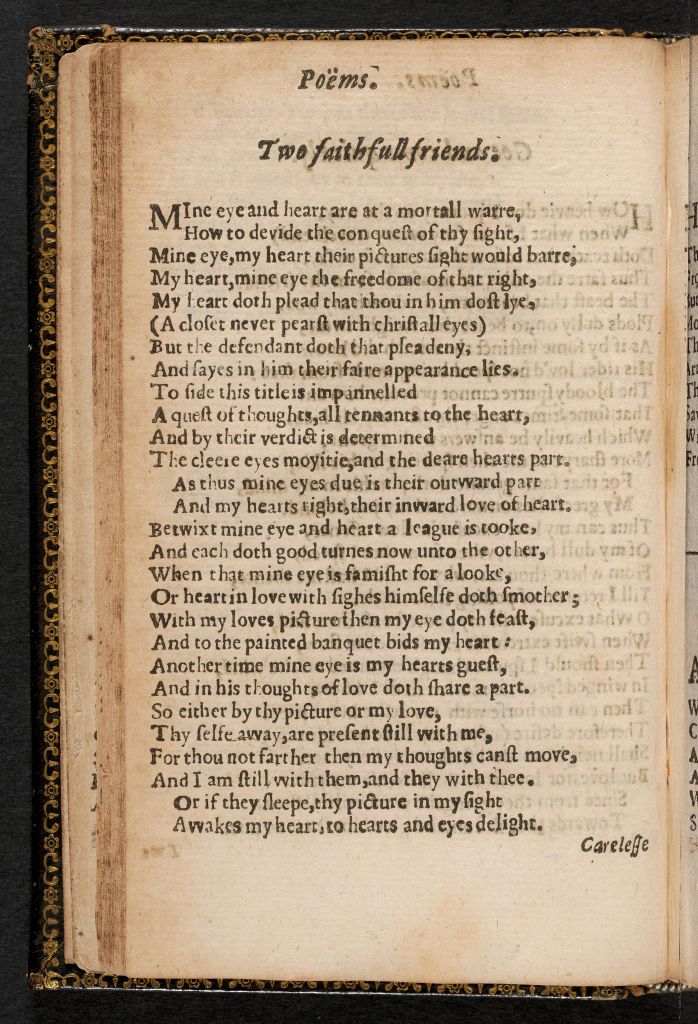 Poëms.
Two faithfull friends.
MIne eye and heart are at a mortall warre,
How to devide the conquest of thy sight,
Mine eye, my heart their pictures sight would barre,
My heart, mine eye the freedome of that right,
My heart doth plead that thou in him dost lye,
(A closet never pearst with christall eyes)
But the defendant doth that plea deny,
And sayes in him their faire appearance lies.
To side this title is impannelled
A quest of thoughts, all tennants to the heart,
And by their verdict is determined
The cleere eyes moyitie, and the deare hearts part.
As thus mine eyes due is their outward part
And my hearts right, their inward love of heart.
Betwixt mine eye and heart a league is tooke,
And each doth good turnes now unto the other,
When that mine eye is famisht for a looke,
Or heart in love with sighes himselfe doth smother;
With my loves picture then my eye doth feast,
And to the painted banquet bids my heart:
Another time mine eye is my hearts guest,
And in his thoughts of love doth share a part.
So either by thy picture or my love,
Thy selfe away, are present still with me,
For thou not farther then my thoughts canst move,
And I am still with them, and they with thee.
Or if they sleepe, thy picture in my sight
Awakes my heart, to hearts and eyes delight.
Carelesse